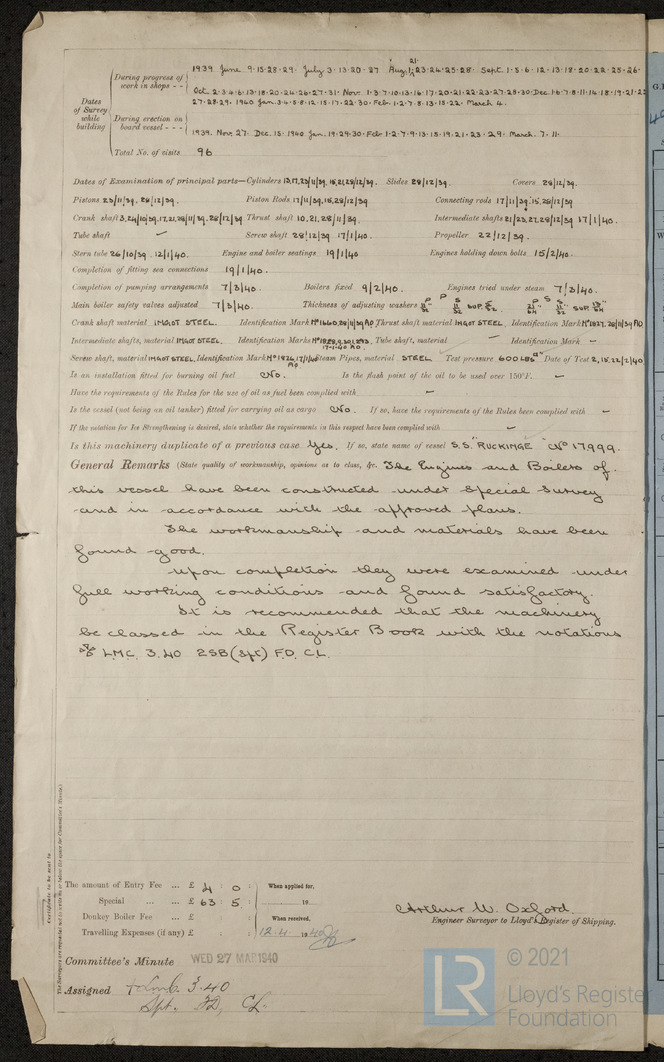 Dates of Survey while building
During progress of work in shops - -
1939. June 9.15.28.29. July 3.13.20.27 Aug. 23.24.25.28. Sept. 1.5.6.12.13.18.20.22.25.26.
Oct. 2.3.4.6.13.18.20.24.26.27.31. Nov. 1.3.7.10.13.16.17.20.21.22.23.27.28.30. Dec. 1.6.7.8.11.14.18.19.21.22
27.28.29. 1940 Jan. 3.4.5.8.12.15.17.22.30. Feb. 1.2.7.8.13.15.22. March 4.
During erection on board vessel - - -
1939. Nov. 27. Dec. 15. 1940 Jan. 19.29.30. Feb. 1.2.7.9.13.15.19.21.23.29. March. 7.11.
Total No. of visits 96
Dates of Examination of principal parts—Cylinders Slides 28/12/39. Covers 28/12/39.
Pistons 23/11/39. 28/12/39. Piston Rods 17/11/39, 15,28/12/39 Connecting rods 17/11/39. 15,28/12/39
Crank shaft 3,24/10/39. 17,21,28/11/39. 28/12/39 Thrust shaft 10,21,28/11/39. Intermediate shafts 21/23,27,28/12/39 17/1/40.
Tube shaft — Screw shaft 28/12/39. 17/1/40. Propeller 22/12/39.
Stern tube 26/10/39. 12/1/40. Engine and boiler seatings 19/1/40 Engines holding down bolts 15/2/40.
Completion of fitting sea connections 19/1/40.
Completion of pumping arrangements 7/3/40. Boilers fixed 9/2/40. Engines tried under steam 7/3/40.
Main boiler safety valves adjusted 7/3/40. Thickness of adjusting washers
Crank shaft material INGOT STEEL. Identification Mark No 1660,28/11/39 AO Thrust shaft material INGOT STEEL Identification Mark No 1827, 28/11/39 AO
Intermediate shafts, material INGOT STEEL. Identification Marks 17-1-40 AO. Tube shaft, material — Identification Mark —
Screw shaft, material INGOT STEEL. Identification Mark No 1826, 17/1/40 AO Steam Pipes, material STEEL Test pressure 600 LBS Date of Test 2,15,22/2/40
Is an installation fitted for burning oil fuel No. Is the flash point of the oil to be used over 150°F. —
Have the requirements of the Rules for the use of oil as fuel been complied with —
Is the vessel (not being an oil tanker) fitted for carrying oil as cargo No. If so, have the requirements of the Rules been complied with —
If the notation for Ice Strengthening is desired, state whether the requirements in this respect have been complied with —
Is this machinery duplicate of a previous case Yes. If so, state name of vessel S.S. "RUCKINGE" No 17,999.
General Remarks (State quality of workmanship, opinions as to class, &c. The Engines and Boilers of
this vessel have been constructed under Special Survey
and in accordance with the approved plans.
The workmanship and materials have been
found good.
Upon completion they were examined under
full working conditions and found satisfactory.
It is recommended that the machinery
be classed in the Register Book with the notations
LMC. 3.40 2SB (Spt) F.D. C.L.
Certificate to be sent to
(The Surveyors are requested not to write on or below the space for Committee's Minute.)
The amount of Entry Fee ... £ 4 : 0 : When applied for,
Special ... ... £ 63 : 5 : 19
Donkey Boiler Fee ... £ : : When received,
Travelling Expenses (if any) £ : : 12.4. 1940
Arthur W. Oxford.
Engineer Surveyor to Lloyd's Register of Shipping.
Committee's Minute WED 27 MAR 1940
Assigned + Lmc 3.40
Spt. FD, CL.
LR
© 2021
Lloyd's Register
Foundation